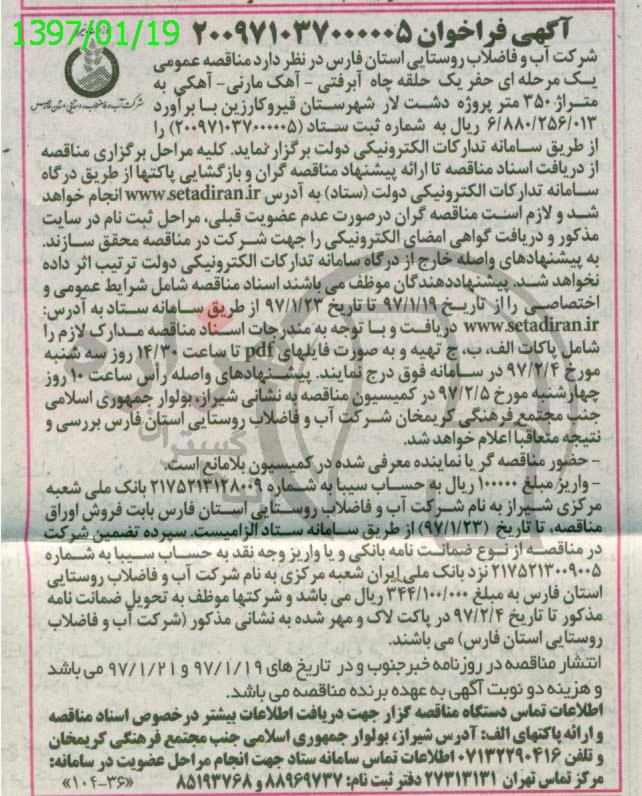 1397/01/19
آگهی فراخوان ۲۰۰۹۷۱۰۳۷۰۰۰۰۰۵
شرکت آب و فاضلاب روستایی استان فارس در نظر دارد مناقصه عمومی
یک مرحله ای حفر یک حلقه چاه آبرفتی - آهک مارنی- آهکی به
متراژ ۳۵۰ متر پروژه دشت لار شهرستان قیروکارزین با برآورد
۶/۸۸۰/۲۵۶/۰۱۳ ریال به شماره ثبت ستاد (۲۰۰۹۷۱۰۳۷۰۰۰۰۰۵) را
شرکت آب و فاضلاب روستایی استان فارس
از طریق سامانه تدارکات الکترونیکی دولت برگزار نماید. کلیه مراحل برگزاری مناقصه
از دریافت اسناد مناقصه تا ارائه پیشنهاد مناقصه گران و بازگشایی پاکتها از طریق درگاه
سامانه تدارکات الکترونیکی دولت (ستاد) به آدرس www.setadiran.ir انجام خواهد
شد و لازم است مناقصه گران درصورت عدم عضویت قبلی، مراحل ثبت نام در سایت
مذکور و دریافت گواهی امضای الکترونیکی را جهت شرکت در مناقصه محقق سازند.
به پیشنهادهای واصله خارج از درگاه سامانه تدارکات الکترونیکی دولت ترتیب اثر داده
نخواهد شد. پیشنهاددهندگان موظف می باشند اسناد مناقصه شامل شرایط عمومی و
اختصاصی را از تاریخ ۹۷/۱/۱۹ تا تاریخ ۹۷/۱/۲۳ از طریق سامانه ستاد به آدرس:
www.setadiran.ir دریافت و با توجه به مندرجات اسناد مناقصه مدارک لازم را
شامل پاکات الف، ب، ج تهیه و به صورت فایلهای pdf تا ساعت ۱۴/۳۰ روز سه شنبه
مورخ ۹۷/۲/۴ در سامانه فوق درج نمایند. پیشنهادهای واصله رأس ساعت ۱۰ روز
چهارشنبه مورخ ۹۷/۲/۵ در کمیسیون مناقصه به نشانی شیراز، بولوار جمهوری اسلامی
جنب مجتمع فرهنگی کریمخان شرکت آب و فاضلاب روستایی استان فارس بررسی و
نتیجه متعاقباً اعلام خواهد شد.
- حضور مناقصه گر یا نماینده معرفی شده در کمیسیون بلامانع است.
- واریز مبلغ ۱۰۰۰۰۰ ریال به حساب سیبا به شماره ۲۱۷۵۲۱۳۱۲۸۰۰۹ بانک ملی شعبه
مرکزی شیراز به نام شرکت آب و فاضلاب روستایی استان فارس بابت فروش اوراق
مناقصه، تا تاریخ (۹۷/۱/۲۳) از طریق سامانه ستاد الزامیست. سپرده تضمین شرکت
در مناقصه از نوع ضمانت نامه بانکی و یا واریز وجه نقد به حساب سیبا به شماره
۲۱۷۵۲۱۳۰۰۹۰۰۵ نزد بانک ملی ایران شعبه مرکزی به نام شرکت آب و فاضلاب روستایی
استان فارس به مبلغ ۳۴۴/۱۰۰/۰۰۰ ریال می باشد و شرکتها موظف به تحویل ضمانت نامه
مذکور تا تاریخ ۹۷/۲/۴ در پاکت لاک و مهر شده به نشانی مذکور (شرکت آب و فاضلاب
روستایی استان فارس) می باشند.
انتشار مناقصه در روزنامه خبرجنوب و در تاریخ های ۹۷/۱/۱۹ و ۹۷/۱/۲۱ می باشد
و هزینه دو نوبت آگهی به عهده برنده مناقصه می باشد.
اطلاعات تماس دستگاه مناقصه گزار جهت دریافت اطلاعات بیشتر درخصوص اسناد مناقصه
و ارائه پاکتهای الف: آدرس شیراز، بولوار جمهوری اسلامی جنب مجتمع فرهنگی کریمخان
و تلفن ۰۷۱۳۲۲۹۰۴۱۶ اطلاعات تماس سامانه ستاد جهت انجام مراحل عضویت در سامانه:
مرکز تماس تهران ۲۷۳۱۳۱۳۱ دفتر ثبت نام: ۸۸۹۶۹۷۳۷ و ۸۵۱۹۳۷۶۸ «۱۰۴-۳۶»